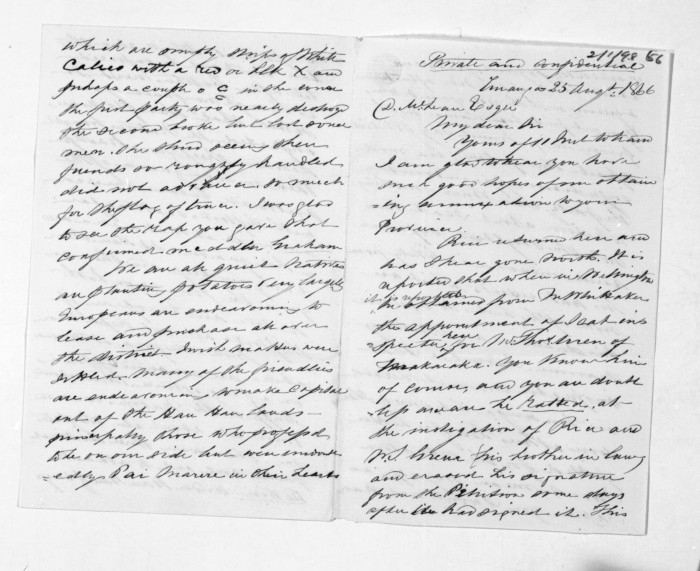 Private and confidential
Turanga 25 Augt. 1866
D. McLean Esqre
My dear Sir
Yours of 11 Inst to hand
I am glad to hear you have
such good hopes of our obtain
-ing annexation to your
Province
Rice returned here and
has I hear gone north. It is
reported that when in Wellington
he obtained from Mr Whitaker
the appointment of
for Mr
You know him
of course, and you are doubt
-less aware he ratted, at
the instigation of Rice and
W. Greene his brother in law
and erased his signature
from the Petition some days
after he had signed it. This
which are simply strips of White
Calico with a red or blk X and
perhaps a couple of C in the corner
the first party was nearly destroyed
the second broke but lost some
men. the third seeing their
friends so roughly handled
did not advance. So much
for the flag of truce. I was glad
to see the slap you gave that
confirmed meddler Graham
We are all quiet Natives
are planting potatoes very largely
Europeans are endeavoring to
lease and purchase all over
the district. Until matters were
settled many of the friendlies
are endeavoring to make capital
out of the Hau Hau lands -
principally those who professed
to be on our side but were undoubt
-edly Pai Marire in their hearts
2/1/98
56